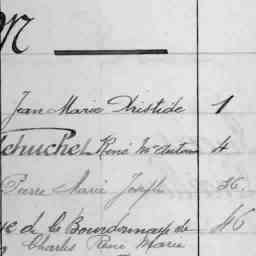 M
Jean Marie Aristide 1
René Mie Antoine 4
Pierre Marie Joseph 36.
de la Bourdonnaye de 46
Charles René Marie